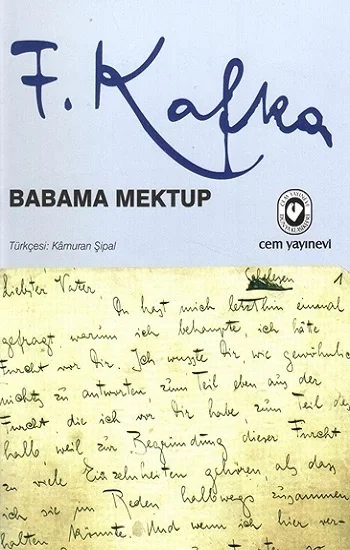 F. Kafka
BABAMA MEKTUP
Türkçesi: Kâmuran Şipal
cem yayınevi
Schelesen
1
Liebster Vater,
Du hast mich letzthin einmal
gefragt, warum ich behaupte, ich hätte
Furcht vor Dir. Ich wusste Dir, wie gewöhnlich
nichts zu antworten, zum Teil eben aus der
Furcht die ich vor Dir habe, zum Teil des
halb weil zur Begründung dieser Furcht
zu viele Einzelnheiten gehören, als dass
ich sie im Reden halbwegs zusammen
halten könnte. Und wenn ich hier ver-